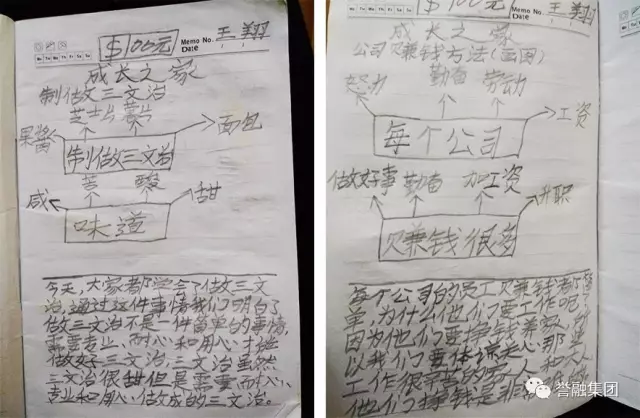 Mo Tu We Th Fr Sa Su
$100元
Memo No.
Date
王翔
成长之家
制做三文治
芝士 薯片
果酱
面包
制做三文治
苦 酸
咸
甜
味道
今天,大家都学会了做三文
治,通过这件事情我们明白了
做三文治不是一件简单的事情,
需要专业、耐心和用心才能
做好三文治,三文治虽然
三文治很甜但是需要耐心、
专业和用心做成的三文治。
$100元
Memo No.
Date
王翔
成长之家
公司赚钱方法(画图)
努力
勤奋 劳动
工资
每个公司
做好事 勤奋 加工资
升职
赚钱很多
每个公司的员工赚钱都
单,为什么他们要工作呢,
因为他们要挣钱养家,
以我们要体谅关心那
工作很辛苦的男人和女人
他们挣钱是非
誉融集团